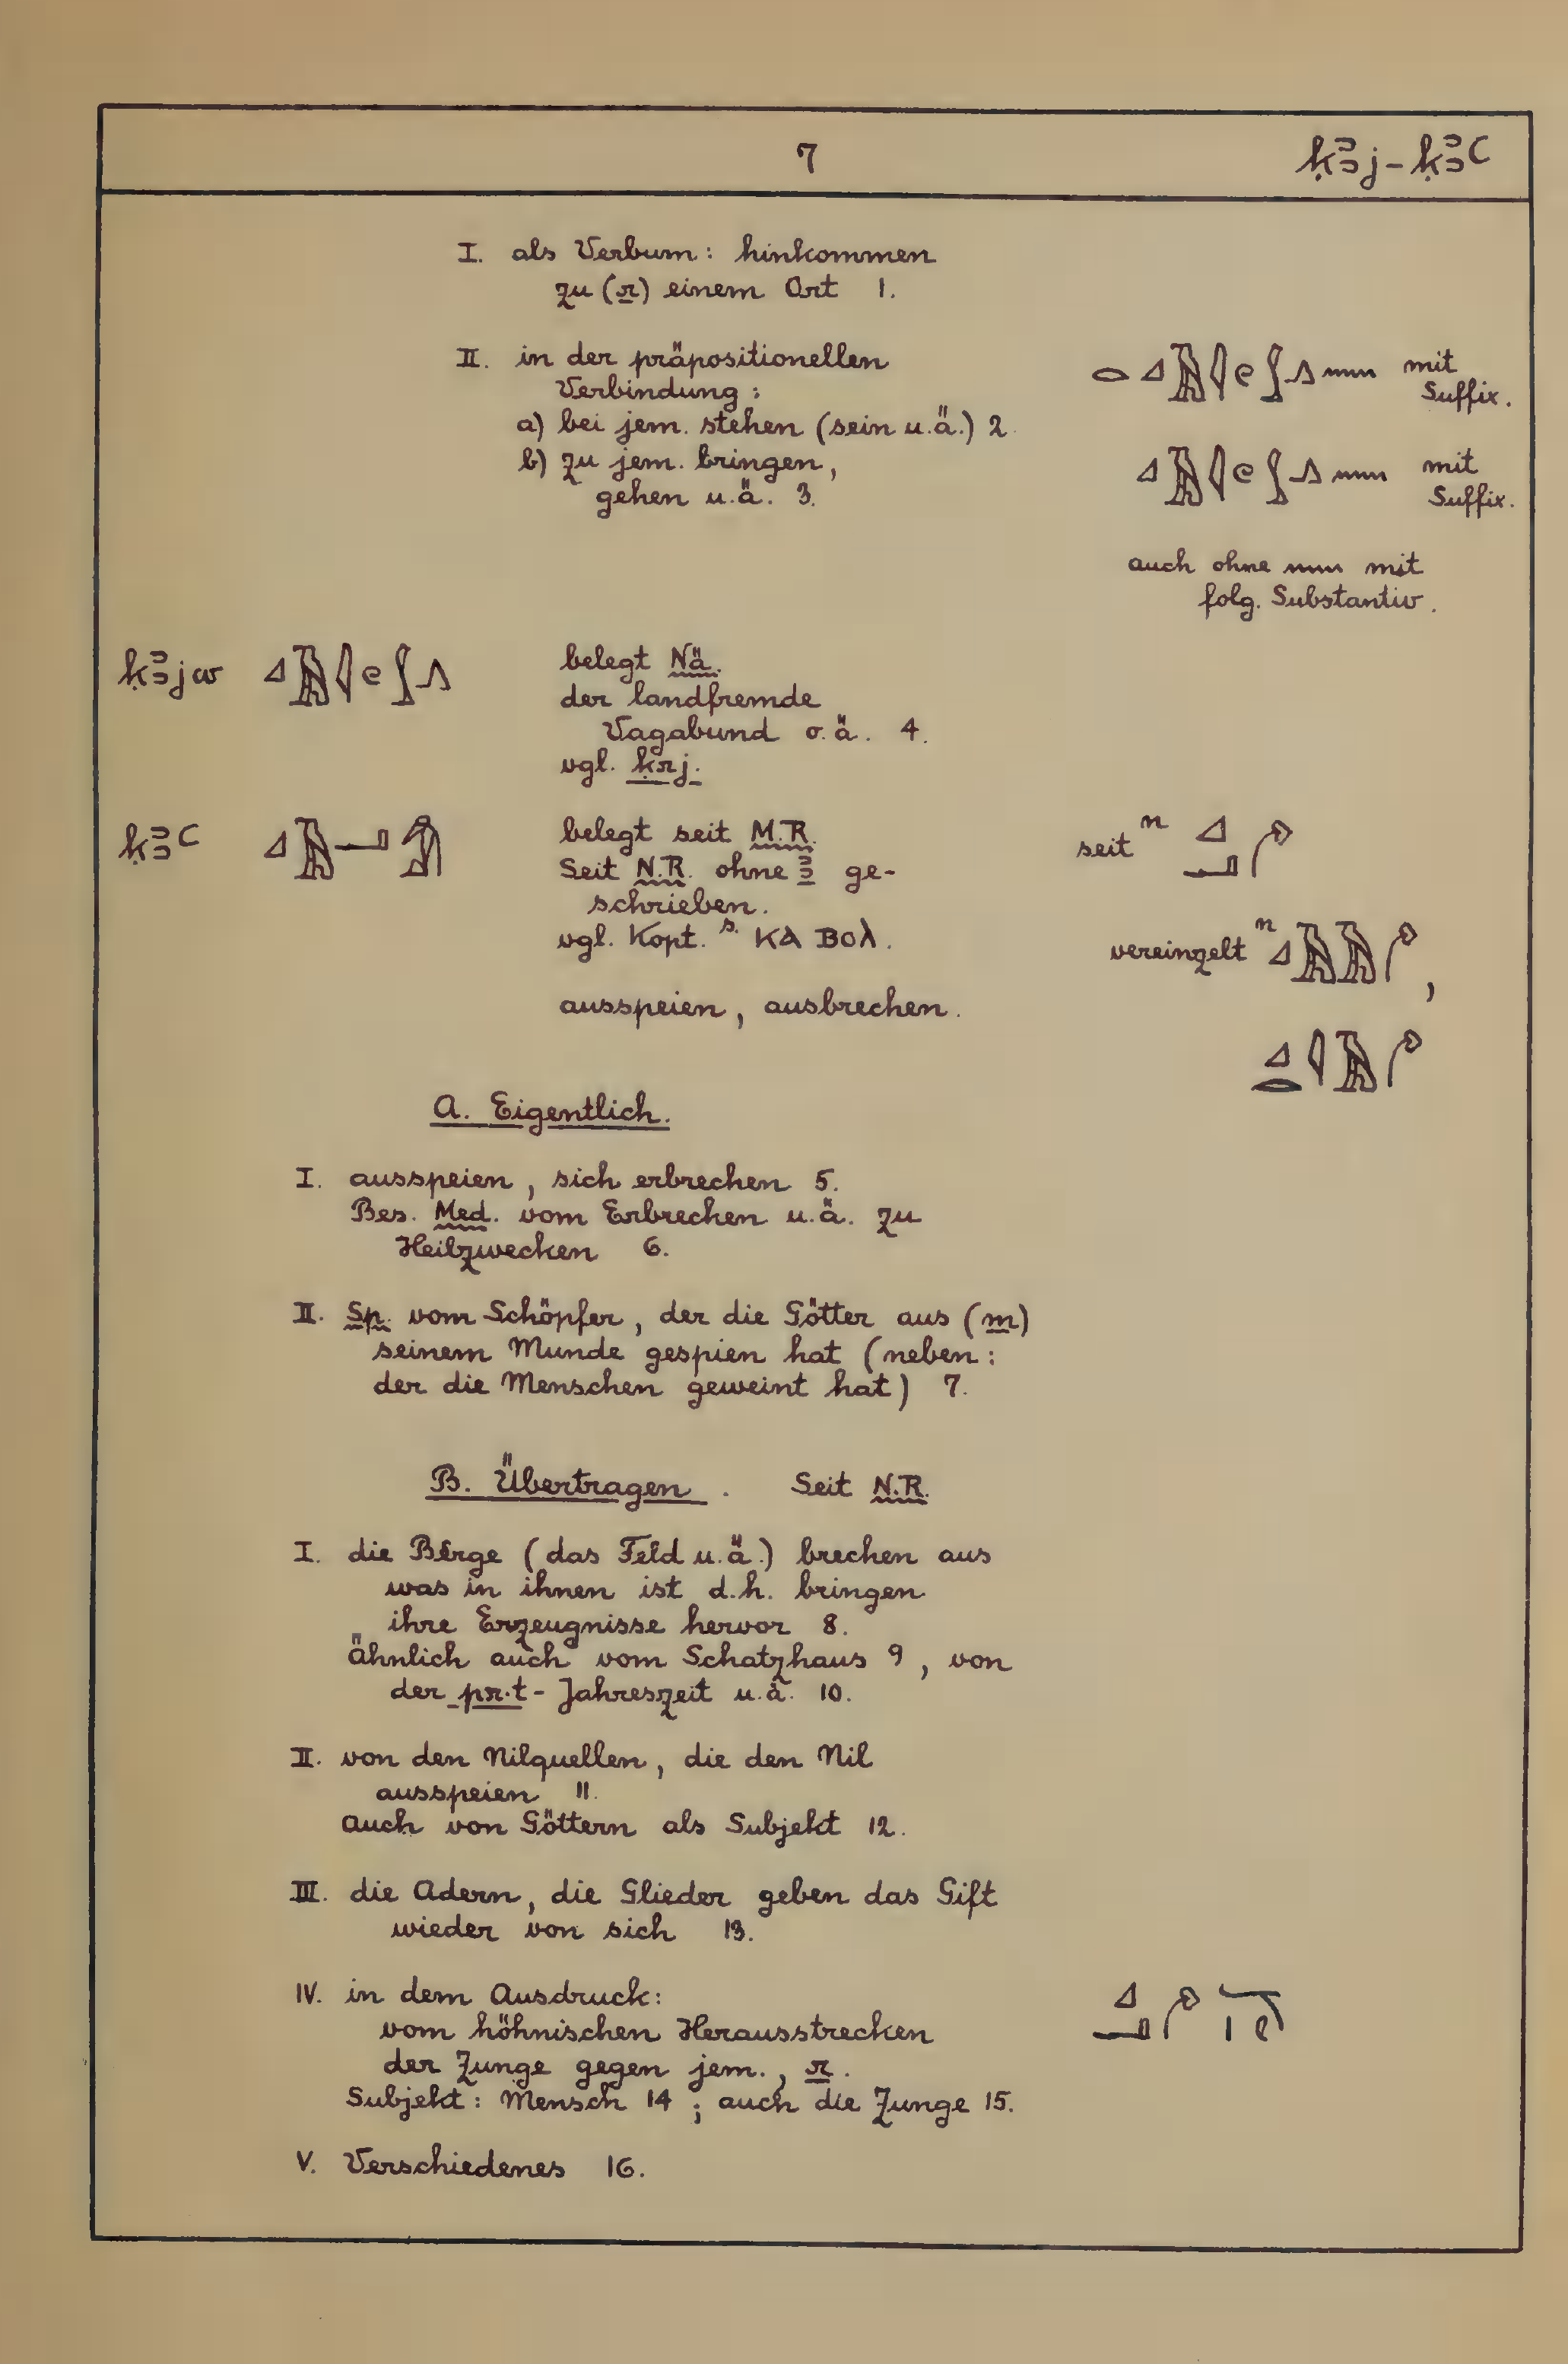 7
ḳꜣj - ḳꜣꜥ
I. als Verbum: hinkommen
zu (r) einem Ort 1.
II. in der präpositionellen
Verbindung:
a) bei jem. stehen (sein u.ä.) 2
b) zu jem. bringen,
gehen u.ä. 3.
mit
Suffix.
mit
Suffix.
auch ohne 𓈖 mit
folg. Substantiv.
ḳꜣjw
belegt Nä.
der landfremde
Vagabund o.ä. 4.
vgl. ḳrj.
ḳꜣꜥ
belegt seit M.R.
Seit N.R. ohne ꜣ ge-
schrieben.
vgl. Kopt. s. ⲕⲁ ⲃⲟⲗ.
ausspeien, ausbrechen.
seit n
vereinzelt n
A. Eigentlich.
I. ausspeien, sich erbrechen 5.
Bes. Med. vom Erbrechen u.ä. zu
Heilzwecken 6.
II. Sp. vom Schöpfer, der die Götter aus (m)
seinem Munde gespien hat (neben:
der die Menschen geweint hat) 7.
B. Übertragen. Seit N.R.
I. die Berge (das Feld u.ä.) brechen aus
was in ihnen ist d.h. bringen
ihre Erzeugnisse hervor 8.
ähnlich auch vom Schatzhaus 9, von
der pr.t - Jahreszeit u.ä. 10.
II. von den Nilquellen, die den Nil
ausspeien 11.
auch von Göttern als Subjekt 12.
III. die Adern, die Glieder geben das Gift
wieder von sich 13.
IV. in dem Ausdruck:
vom höhnischen Herausstrecken
der Zunge gegen jem., r.
Subjekt: Mensch 14; auch die Zunge 15.
V. Verschiedenes 16.